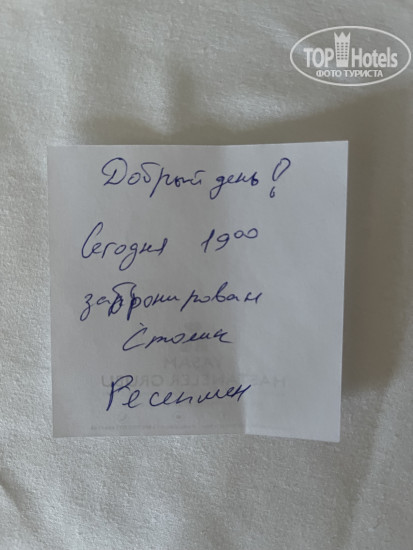 TOP Hotels
ФОТО ТУРИСТА
Добрый день!
Сегодня 19⁰⁰
забронирован
Столик
Ресепшен